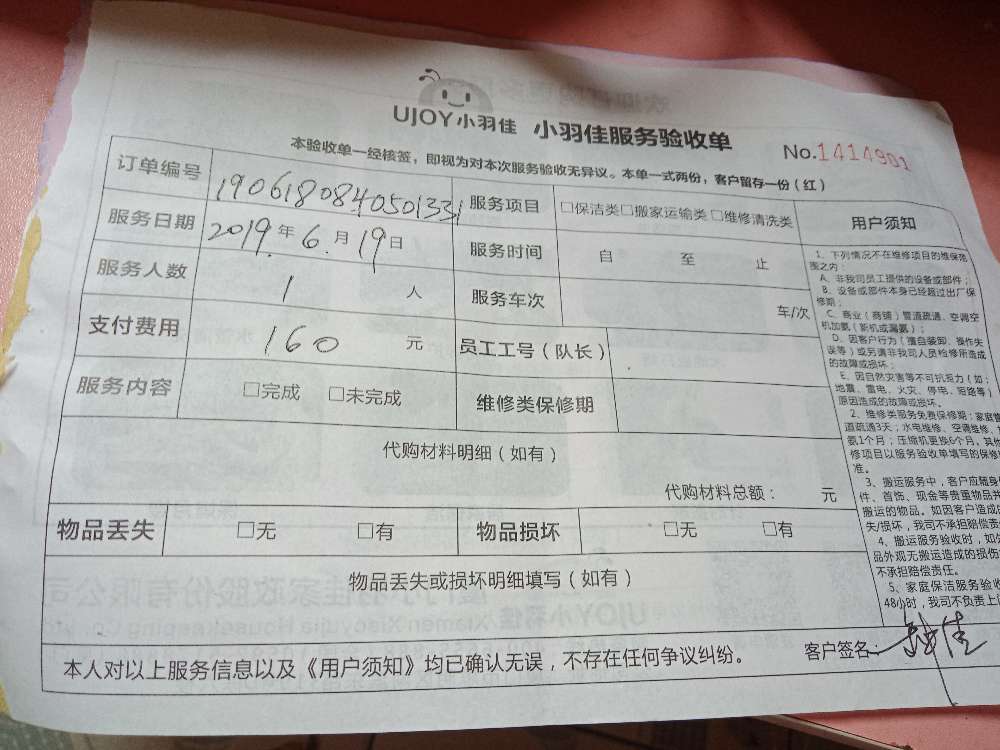 UJOY小羽佳 小羽佳服务验收单
No.1414901
本验收单一经核签，即视为对本次服务验收无异议。本单一式两份，客户留存一份（红）
订单编号 190618084050133 服务项目 □保洁类□搬家运输类□维修清洗类
服务日期 2019.年6.月19日 服务时间 自 至 止
服务人数 1 人 服务车次 车/次
支付费用 160 元 员工工号（队长）
服务内容 □完成 □未完成 维修类保修期
代购材料明细（如有）
代购材料总额： 元
物品丢失 □无 □有 物品损坏 □无 □有
物品丢失或损坏明细填写（如有）
本人对以上服务信息以及《用户须知》均已确认无误，不存在任何争议纠纷。
客户签名：
用户须知
1、下列情况不在维修项目的维保范
围之内：
A、非我司员工提供的设备或部件；
B、设备或部件本身已经超过出厂保
修期；
C、商业（商铺）管道疏通、空调空
机加氨（新机或漏氨）；
D、因客户行为（擅自装卸、操作失
误等）或另请非我司人员检修所造成
的故障或损坏；
E、因自然灾害等不可抗拒力（如：
地震、雷电、火灾、停电、短路等）
原因造成的故障或损坏。
2、维修类服务免费保修期：家庭管
道疏通3天；水电维修、空调维修、
氨1个月；压缩机更换6个月。其他
修项目以服务验收单填写的保修
准。
3、搬运服务中，客户应随身
件、首饰、现金等贵重物品并
搬运的物品。如因客户造成的
失/损坏，我司不承担赔偿责
4、搬运服务验收时，如
品外观无搬运造成的损伤
不承担赔偿责任。
5、家庭保洁服务验收
48小时，我司不负责上